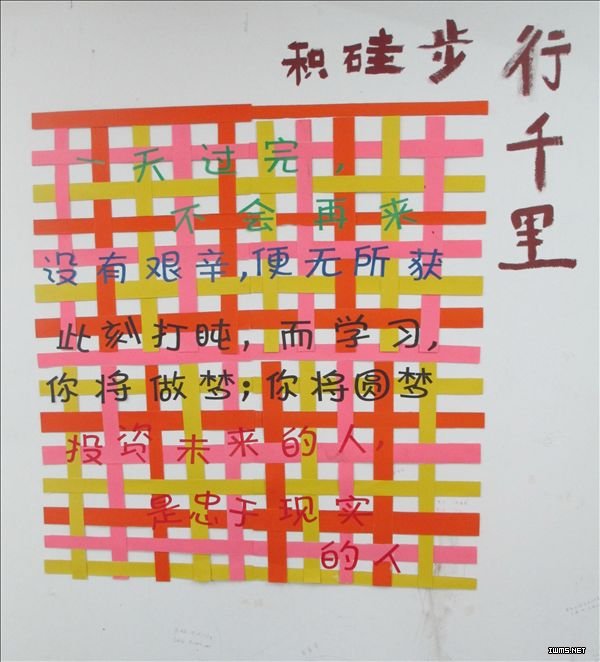 积硅步
行千里
一天过完,
不会再来
没有艰辛,便无所获
此刻打盹,而学习,
你将做梦;你将圆梦
投资未来的人,
是忠于现实
的人
IWMS.NET